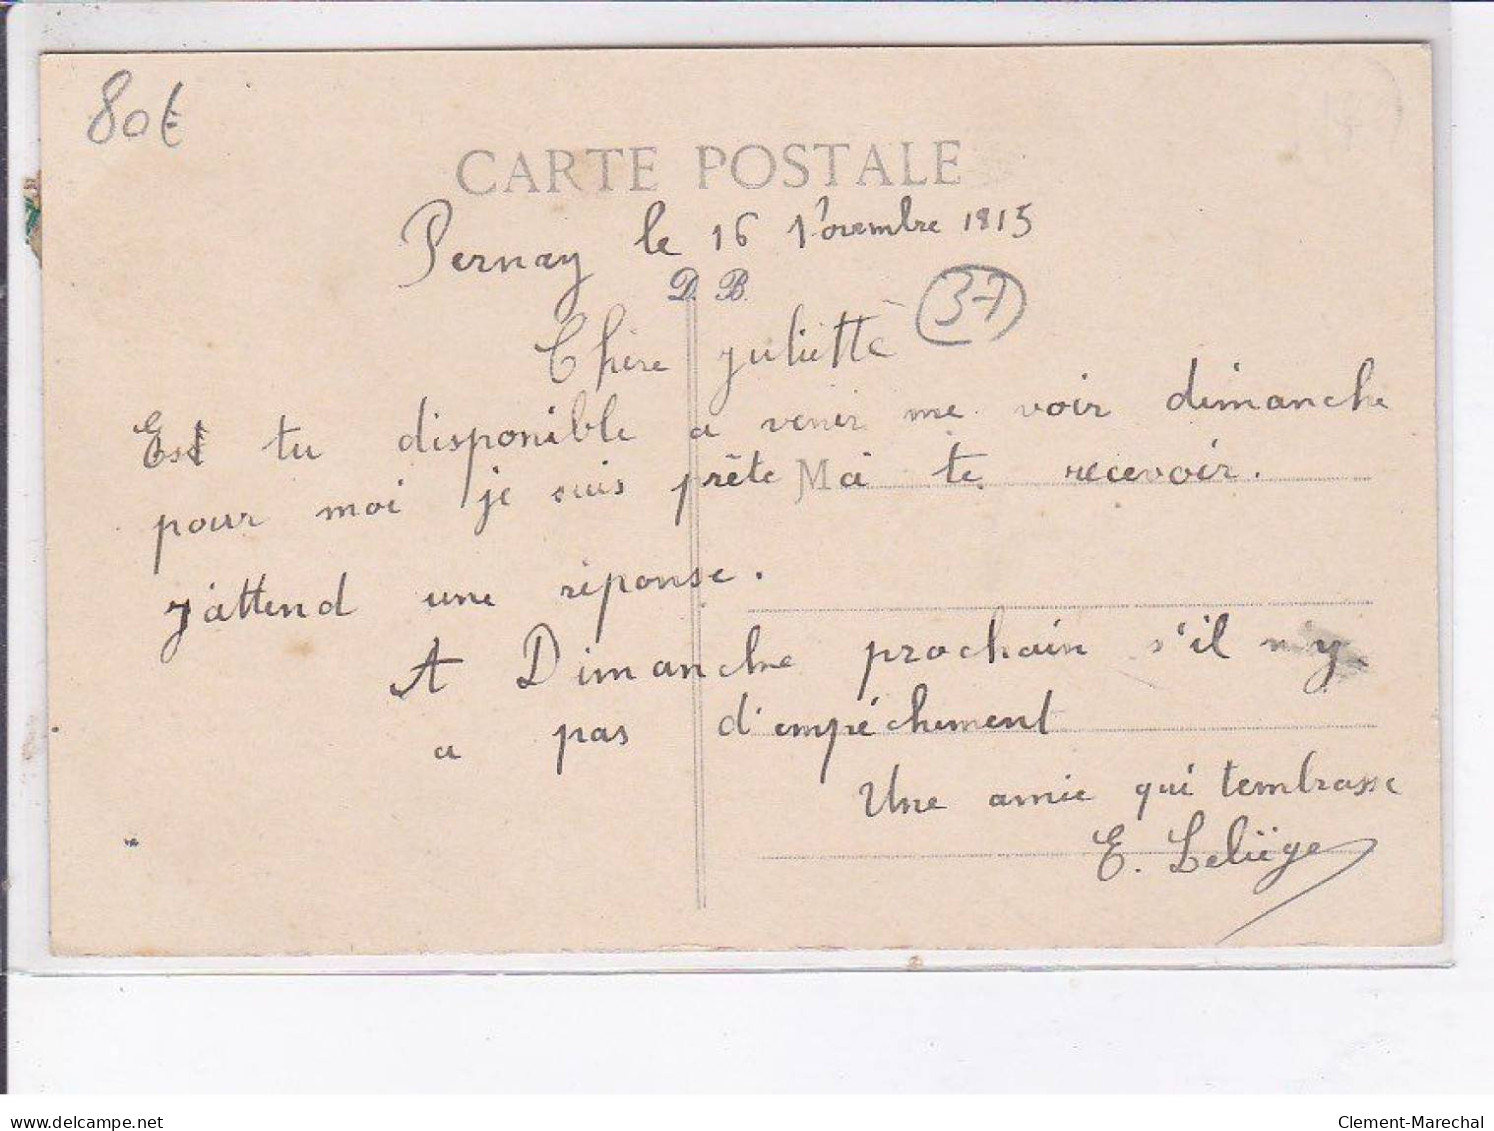 80€
CARTE POSTALE
Pernay le 16 Novembre 1915
D. B.
37
Chère Juliette
Est tu disponible a venir me voir dimanche
pour moi je suis prête M à te recevoir.
J'attend une réponse.
A Dimanche prochain s'il n'y
a pas d'empéchement
Une amie qui t'embrasse
E. Leliège
www.delcampe.net
Clement-Marechal